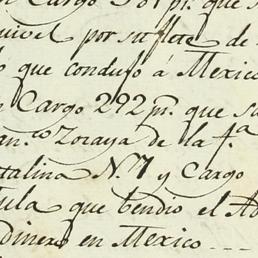 Cargo 381 p.s que s
quivel por su flete de
o que condujo á Mexico
Cargo 292 p.s que su
an.co Zoraya de la f.a
atalina N.o 7 y Cargo
ula que bendio el Ad
dinero en Mexico